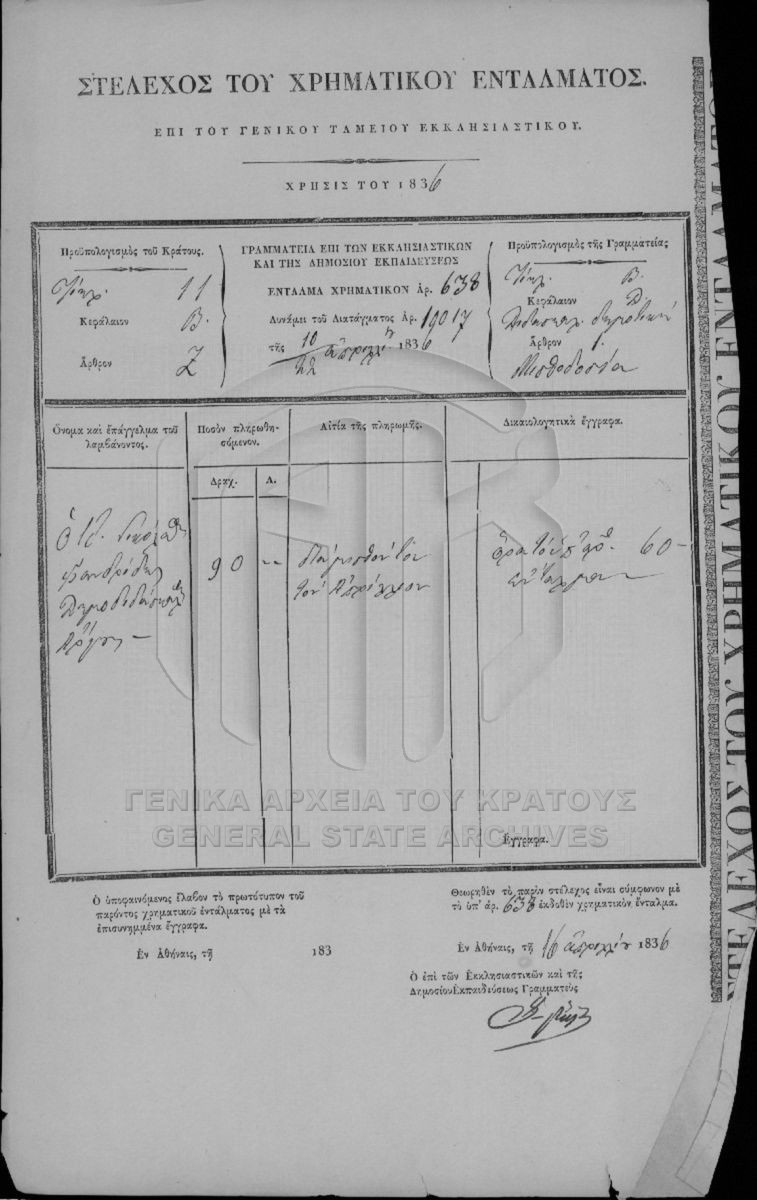 ΣΤΕΛΕΧΟΣ ΤΟΥ ΧΡΗΜΑΤΙΚΟΥ ΕΝΤΑΛΜΑΤΟΣ.
ΕΠΙ ΤΟΥ ΓΕΝΙΚΟΥ ΤΑΜΕΙΟΥ ΕΚΚΛΗΣΙΑΣΤΙΚΟΥ.
ΧΡΗΣΙΣ ΤΟΥ 1836
Προϋπολογισμὸς τοῦ Κράτους.
11
Κεφάλαιον
Β.
Ἄρθρον
Ζ
ΓΡΑΜΜΑΤΕΙΑ ΕΠΙ ΤΩΝ ΕΚΚΛΗΣΙΑΣΤΙΚΩΝ
ΚΑΙ ΤΗΣ ΔΗΜΟΣΙΟΥ ΕΚΠΑΙΔΕΥΣΕΩΣ
ΕΝΤΑΛΜΑ ΧΡΗΜΑΤΙΚΟΝ Ἀρ. 638
Δυνάμει τοῦ Διατάγματος Ἀρ. 19017
τῆς 10/22 ἀπριλλίου 1836
Προϋπολογισμὸς τῆς Γραμματείας
Β.
Κεφάλαιον
Ἄρθρον
Μισθοδοσία
Ὄνομα καὶ ἐπάγγελμα τοῦ
λαμβάνοντος.
Ποσὸν πληρωθη-
σόμενον.
Δραχ. Λ.
Αἰτία τῆς πληρωμῆς.
Δικαιολογητικὰ ἔγγραφα.
Ὁ Κ.
90 --
τὸν Ἀπρίλλιον
60 -
Ἔγγραφα.
ΓΕΝΙΚΑ ΑΡΧΕΙΑ ΤΟΥ ΚΡΑΤΟΥΣ
GENERAL STATE ARCHIVES
Ὁ ὑποφαινόμενος ἔλαβον τὸ πρωτότυπον τοῦ
παρόντος χρηματικοῦ ἐντάλματος μὲ τὰ
ἐπισυνημμένα ἔγγραφα.
Ἐν Ἀθήναις, τῇ 183
Θεωρηθὲν τὸ παρὸν στέλεχος εἶναι σύμφωνον μὲ
τὸ ὑπ' ἀρ. 638 ἐκδοθὲν χρηματικὸν ἔνταλμα.
Ἐν Ἀθήναις, τῇ 16 ἀπριλλίου 1836
Ὁ ἐπὶ τῶν Ἐκκλησιαστικῶν καὶ τῆς
Δημοσίου Ἐκπαιδεύσεως Γραμματεὺς
ΣΤΕΛΕΧΟΣ ΤΟΥ ΧΡΗΜΑΤΙΚΟΥ ΕΝΤΑΛΜΑΤΟΣ